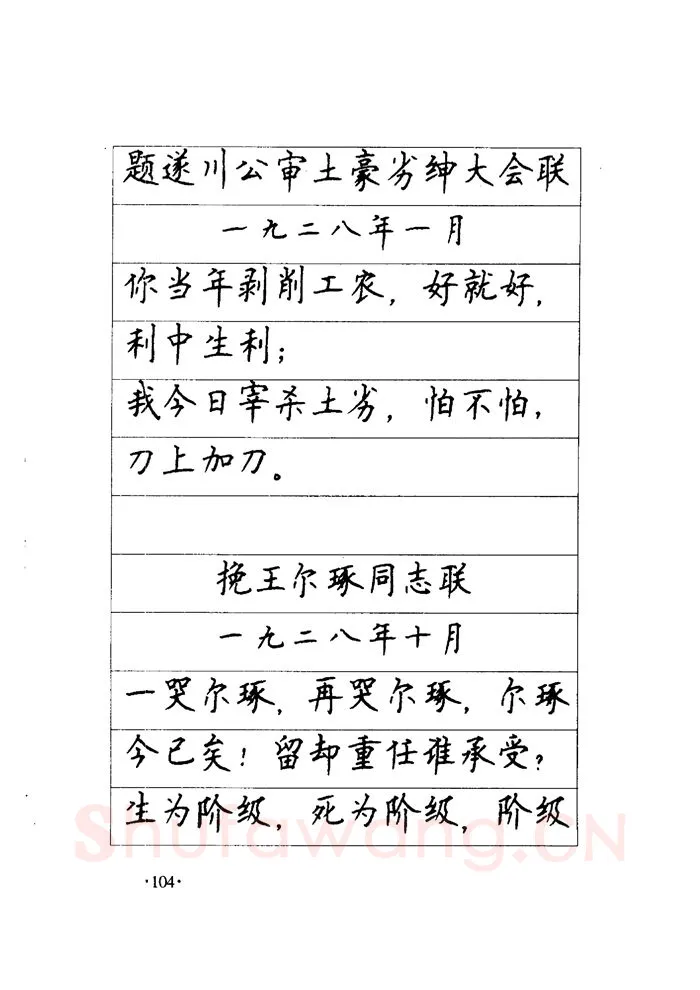 题遂川公审土豪劣绅大会联
一九二八年一月
你当年剥削工农，好就好，
利中生利；
我今日宰杀土劣，怕不怕，
刀上加刀。
挽王尔琢同志联
一九二八年十月
一哭尔琢，再哭尔琢，尔琢
今已矣！留却重任谁承受？
生为阶级，死为阶级，阶级
Shufawang.CN
·104·